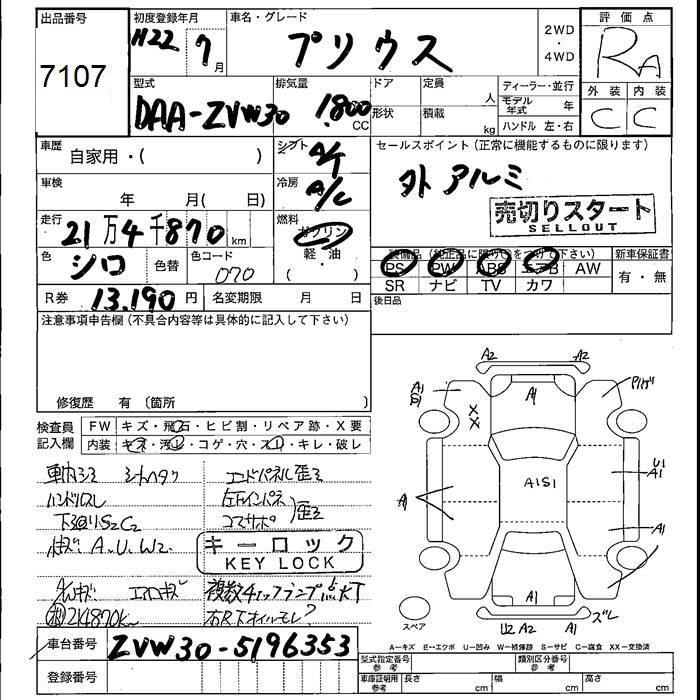 出品番号
7107
初度登録年月
H22 7月
車名・グレード
プリウス
2WD
・
4WD
評価点
RA
外装 内装
C C
型式
DAA-ZVW30
排気量
1.800 CC
ドア
形状
定員 人
積載 kg
ディーラー・並行
モデル年式 年
ハンドル 左・右
車歴 自家用・( )
シフト A/T
車検 年 月( 日)
冷房 A/C
走行 21万4千870km
燃料 ガソリン
軽・油
( )
色 シロ 色替
色コード 070
R券 13.190円 名変期限 月 日
セールスポイント(正常に機能するものに限ります)
外アルミ
売切りスタート
SELLOUT
装備品(純正品に限り○をつけ下さい)
PS PW ABS エアB AW
SR ナビ TV カワ
新車保証書
有・無
後日品
注意事項申告欄(不具合内容等は具体的に記入して下さい)
修復歴 有(箇所 )
検査員
記入欄
FW キズ・飛石・ヒビ割・リペア跡・X要
内装 キズ・汚れ・コゲ・穴・スレ・キレ・破レ
車内シミ シートヘタリ
ハンドルスレ
下廻りS2C2
A.U.W2.
エンドパネル歪ミ
左Fインパネ
コアサポ 歪ミ
キーロック
KEY LOCK
エアロキズ
214870K
複数チェックランプ点灯
右R下オイルモレ?
A2 A2
A1
A1
S1
XX
A1S1
A
U1
A1
A1
A1
U2 A2 A1
ズレ
スペア
A=キズ E=エクボ U=凹み W=補修跡 S=サビ C=腐食 XX=交換済
車台番号 ZVW30-5196353
登録番号
型式指定番号
参考
類別区分番号
参考
車庫証明用
参考
長さ cm 幅 cm 高さ cm